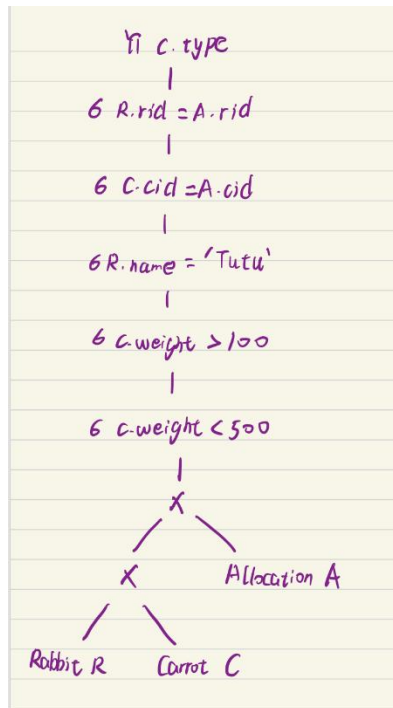 π C.type
σ R.rid = A.rid
σ C.cid = A.cid
σ R.name = 'Tutu'
σ C.weight > 100
σ C.weight < 500
X
X Allocation A
Rabbit R Carrot C